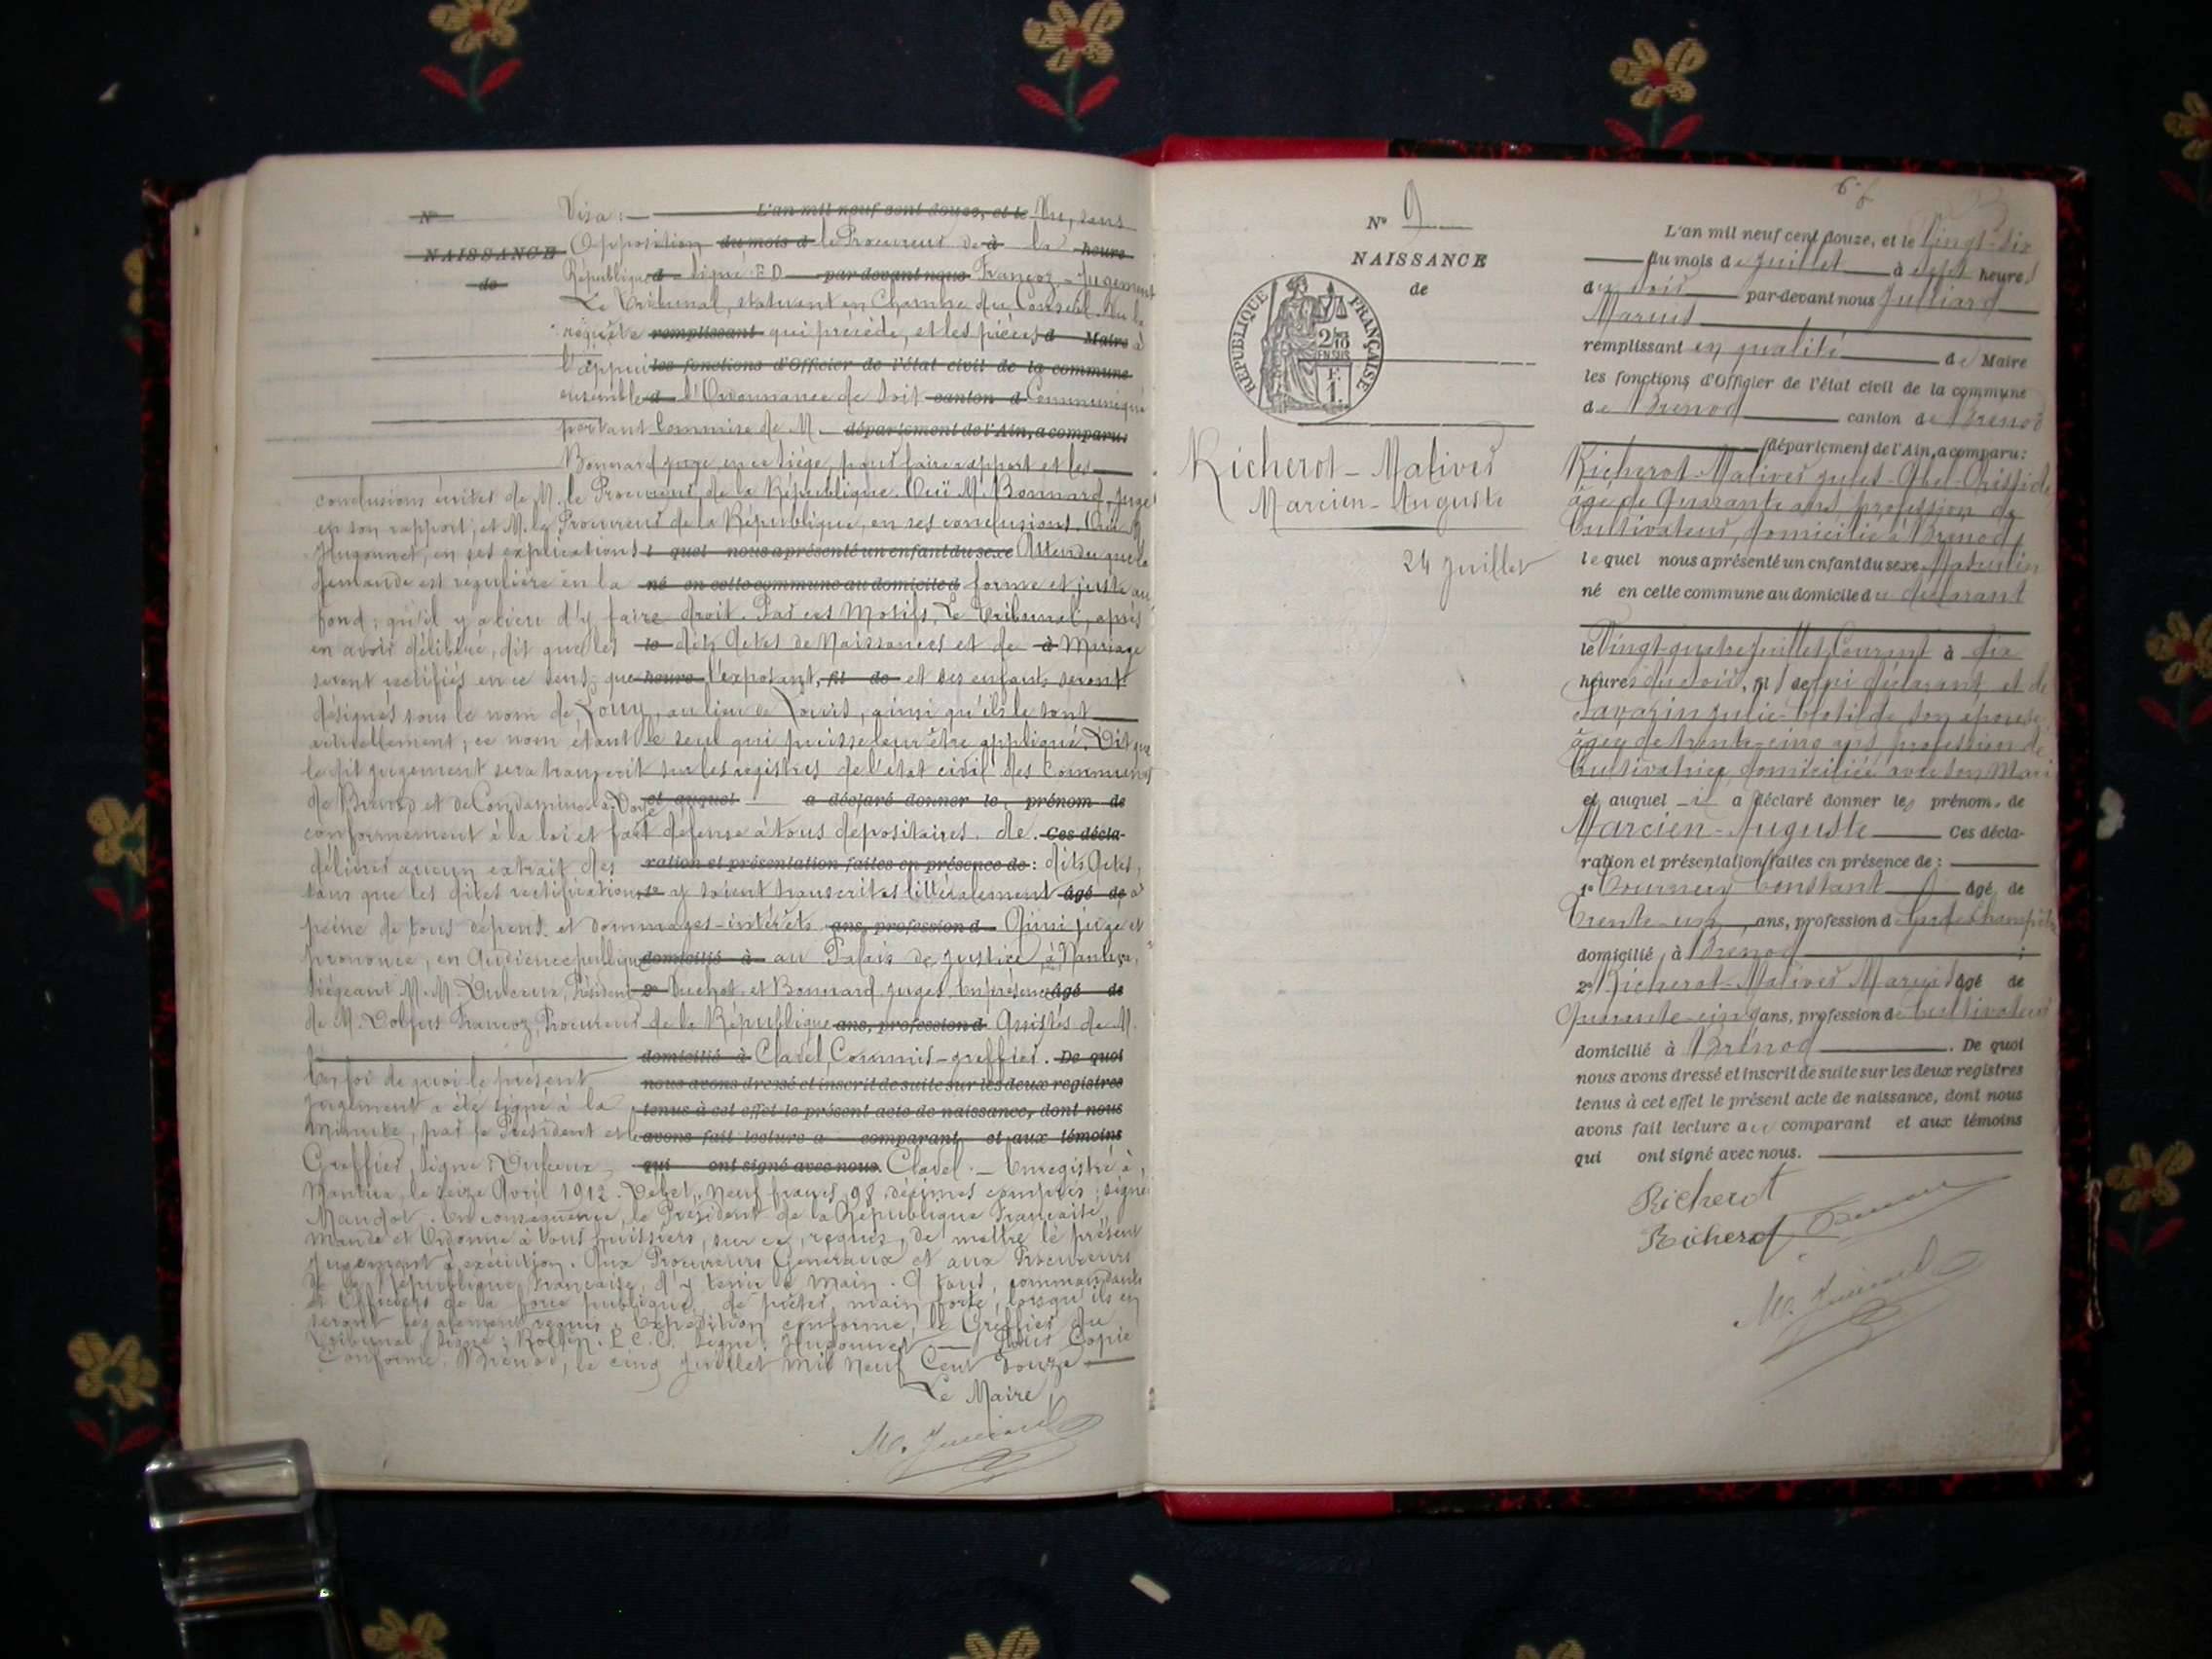 N°
NAISSANCE
de
Visa : — L'an mil neuf cent douze, et le Vu, sans
Opposition du mois d le Procureur de à la heure
République d signé F D par devant nous Françoz. - Jugement
Le Tribunal, statuant en Chambre du Conseil. Vu la
requête remplissant qui précède, et les pièces d Maire à
l'appui les fonctions d'Officier de l'état civil de la commune
ensemble d l'Ordonnance de Soit canton d Communiqué
portant Commise de M. département de l'Ain, a comparu:
Bonnard juge en ce siège, pour faire rapport et les
conclusions écrites de M. le Procureur de la République. Ouï M. Bonnard, juge
en son rapport, et M. le Procureur de la République, en ses conclusions. Ouï M.
Hugonnet, en ses explications l quel nous a présenté un enfant du sexe Attendu que la
demande est régulière en la né en cette commune au domicile d forme et juste au
fond ; qu'il y a lieu d'y faire droit. Par ces Motifs, Le Tribunal, après
en avoir délibéré, dit que les le dits Actes de Naissances et de à Mariage
seront rectifiés en ce sens, que heure l'exposant, fil de et ses enfants seront
désignés sous le nom de Louy, au lieu de Louis, ainsi qu'ils le sont
actuellement, ce nom étant le seul qui puisse leur être appliqué. Dit que
le dit jugement sera transcrit sur les registres de l'état civil des Communes
de Brénod et de Condamine la Doye et auquel a déclaré donner le prénom de
conformément à la loi et fait défense à tous dépositaires de Ces décla-
délivrer aucun extrait des ration et présentation faites en présence de : dits Actes,
sans que les dites rectifications 1° y soient transcrites littéralement âgé de à
peine de tous dépens et dommages-intérêts ans, profession d Ainsi jugé et
prononcé, en Audience publique domicilié à au Palais de Justice, à Nantua,
Siégeant M.M. Président 2° Buchet et Bonnard juges. En présence âgé de
de M. Françoz, Procureur de la République ans, profession d Assistés de M.
domicilié à Clavel, Commis-greffier. De quoi
En foi de quoi le présent nous avons dressé et inscrit de suite sur les deux registres
jugement a été signé à la tenus à cet effet le présent acte de naissance, dont nous
minute, par le Président et le avons fait lecture a comparant et aux témoins
Greffier, Signé : qui ont signé avec nous. Clavel. — Enregistré à
Nantua, le seize Avril 1912. Débet, Neuf francs 98, décimes compris ; signé
Mandot. En conséquence, le Président de la République Française,
mande et Ordonne à tous huissiers, sur ce, requis, de mettre le présent
Jugement à exécution. Aux Procureurs Généraux et aux Procureurs
de la République Française, d'y tenir la main. A tous, commandants
et Officiers de la force publique, de prêter main forte, lorsqu'ils en
seront légalement requis. Expédition conforme, le Greffier du
Tribunal, signé : Signé : Hugonnet. — Pour Copie
Conforme. Brénod, le cinq Juillet Mil Neuf Cent Douze.
Le Maire,
M. Juilliard
N° 9
NAISSANCE
de
RÉPUBLIQUE FRANÇAISE
2/10
EN SUS
F.
1.
Richerot-Matives
Marcien-Auguste
24 juillet
L'an mil neuf cent douze, et le Vingt-six
du mois de Juillet à sept heures
du soir par-devant nous Julliard
Marius
remplissant en qualité de Maire
les fonctions d'Officier de l'état civil de la commune
de Brénod canton de Brénod
département de l'Ain, a comparu :
Richerot-Matives Jules-Abel-Aristide
âgé de Quarante ans profession de
Cultivateur, domicilié à Brénod,
lequel nous a présenté un enfant du sexe Masculin
né en cette commune au domicile du déclarant
le Vingt-quatre Juillet Courant à dix
heures du soir, fils de lui déclarant et de
Savarin Julie-Clotilde son épouse
âgée de trente-cinq ans profession de
Cultivatrice, domiciliée avec son Mari
et auquel il a déclaré donner les prénoms de
Marcien-Auguste Ces décla-
ration et présentation faites en présence de :
1° Constant âgé de
Trente-un ans, profession de Garde Champêtre
domicilié à Brénod ;
2° Richerot-Matives Marius âgé de
Quarante-cinq ans, profession de Cultivateur
domicilié à Brénod. De quoi
nous avons dressé et inscrit de suite sur les deux registres
tenus à cet effet le présent acte de naissance, dont nous
avons fait lecture au comparant et aux témoins
qui ont signé avec nous.
Richerot
Richerot
M. Juilliard